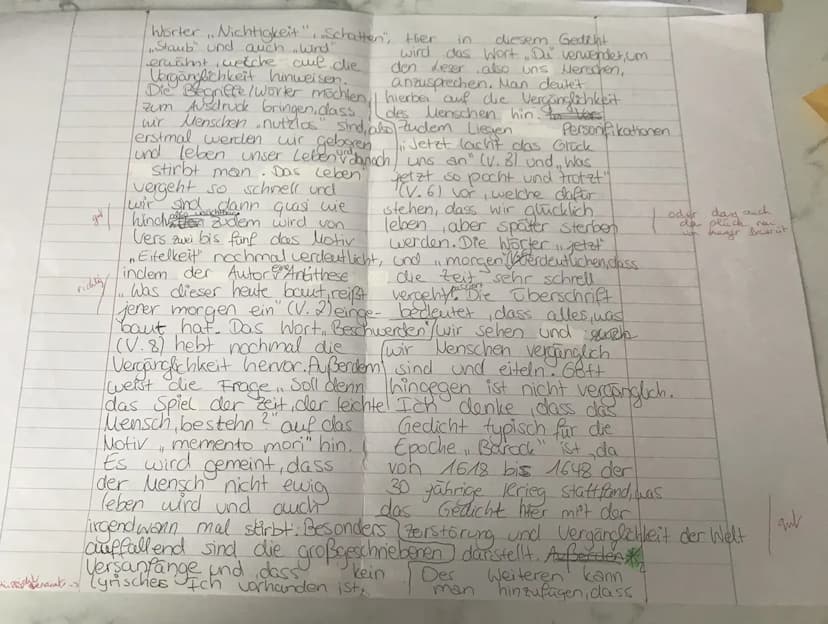 Wörter „Nichtigkeit", „Schatten",
„Staub" und auch „Wind"
erwähnt, welche auf die
Vergänglichkeit hinweisen.
Die Begriffe/Wörter möchten
zum Ausdruck bringen, dass
wir Menschen „nutzlos" sind, also
erstmal werden wir geboren
und leben unser Leben und danach
stirbt man. Das Leben
vergeht so schnell und
wir sind dann quasi wie
Zudem wird von
Vers zwei bis fünf das Motiv
„Eitelkeit" nochmal verdeutlicht,
indem der Autor eine Antithese
„Was dieser heute baut, reißt
jener morgen ein" (V. 2) einge-
baut hat. Das Wort „Beschwerden"
(V. 8) hebt nochmal die
Vergänglichkeit hervor. Außerdem
weist die Frage „Soll denn
das Spiel der Zeit, der leichte
Mensch, bestehn?" auf das
Motiv „memento mori" hin.
Es wird gemeint, dass
der Mensch nicht ewig
leben wird und auch
irgendwann mal stirbt. Besonders
auffallend sind die großgeschriebenen
Versanfänge und, dass kein
lyrisches Ich vorhanden ist.
Hier in diesem Gedicht
wird das Wort „Du" verwendet, um
den Leser, also uns Menschen,
anzusprechen. Man deutet
hierbei auf die Vergänglichkeit
des Menschen hin.
Zudem liegen Personifikationen
„Jetzt lacht das Glück
uns an" (V. 8) und „Was
jetzt so pocht und trotzt"
(V. 6) vor, welche dafür
stehen, dass wir glücklich
leben, aber später sterben
werden. Die Wörter „jetzt"
und „morgen" verdeutlichen, dass
die Zeit sehr schnell
vergeht. Die Überschrift
bedeutet, dass alles, was
wir sehen und
wir Menschen vergänglich
sind und eiteln. Gott
hingegen ist nicht vergänglich.
Ich denke, dass das
Gedicht typisch für die
Epoche „Barock" ist, da
von 1618 bis 1648 der
30 jährige Krieg stattfand, was
das Gedicht hier mit der
Zerstörung und Vergänglichkeit der Welt
darstellt.
Des Weiteren kann
man hinzufügen, dass
gut
richtig
oder dass auch
gut